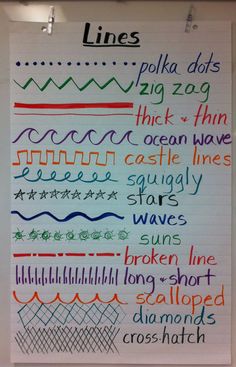 Lines
polka dots
zig zag
thick + thin
ocean wave
castle lines
squiggly
stars
waves
suns
broken line
long + short
scalloped
diamonds
cross-hatch